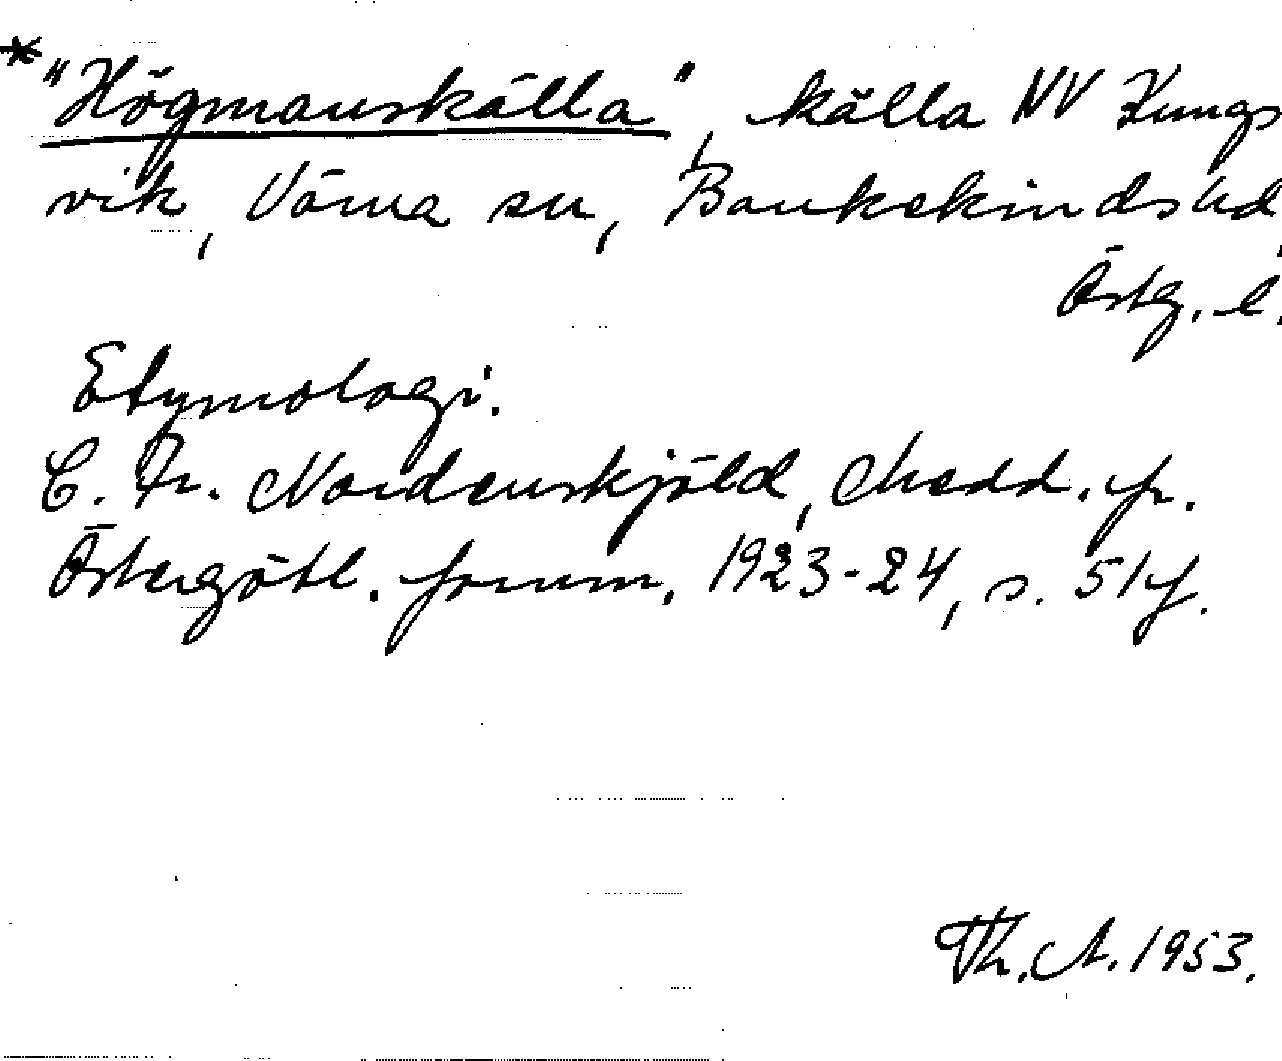 *"Högmanskälla", källa NV Kungs
vik, Värna sn, Bankekinds hd
Östg. l.
Etymologi.
C. Fr. Nordenskjöld, Medd. fr.
Östergötl. fornm. 1923-24, s. 51f.
Th. A. 1953.